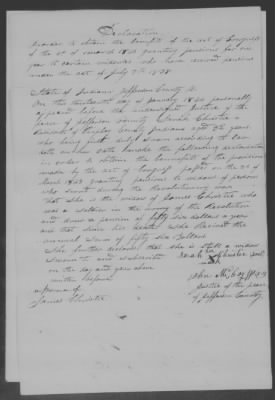 Declaration
In order to obtain the benefit of the act of Congress
of the of March 1843 granting pensions for one
year to certain widows who have received pensions
under the act of July 7th 1838
State of Indiana Jefferson County ss
On this thirteenth day of January 1844 personally
appeared before the undersigned Justice of the
peace of Jefferson County Sarah Christie a
resident of County Indiana aged years
who being first duly Sworn according to law
doth on her oath make the following declaration
in order to obtain the benefit of the provision
made by the act of Congress passed on the of
March 1843 granting pensions to widows of persons
who served during the Revolutionary war
that she is the widow of James Christie who
was a Soldier in the army of the Revolution
and drew a pension of fifty six dollars a year
and that since his death she received the
annual sum of fifty six Dollars
she further declares that she is still a widow
Sworn to and subscribed
on the day and year above
written before
Sarah X Christie
John
Justice of the peace
of Jefferson County
James Christie